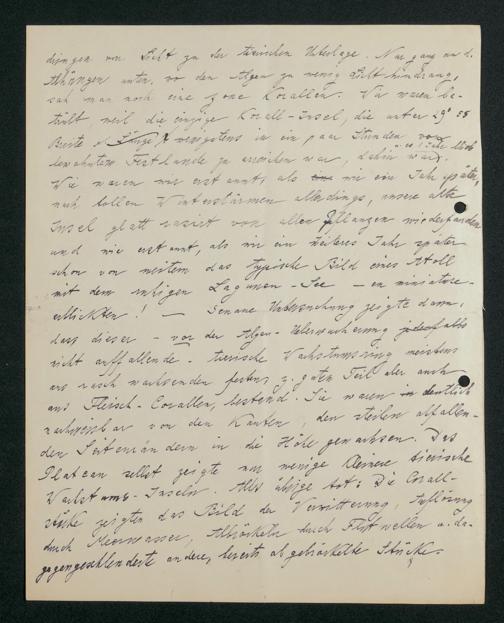 dringen von Licht zu der tierischen Unterlage. Nur ganz an d.
Abhängen unten, wo den Algen zu wenig Licht hindrang,
sah man noch eine Zone Korallen. Wir waren be-
trübt, weil die einzige Korall-Insel, die unter 29° 55
Breite wenigstens in ein paar Stunden vom
bewohnten Festlande zu erreichen war, dahin war.
Wie waren wir erstaunt, als wir ein Jahr später,
nach tollen Winterstürmen allerdings, unsere alte
Insel glatt rasiert von allen Pflanzen wiederfanden
und wie erstaunt, als wir ein weiteres Jahr später
schon von weitem das typische Bild eines Atoll
mit dem ruhigen Lagunen-See – en miniature –
erblickten! – Genaue Untersuchung zeigte dann,
dass dieser – vor der Algen-Ueberwucherung jedenfalls
nicht auffallende – tierische Wachstumsring meistens
aus rasch wachsenden festen, z. guten Teil aber auch
aus Fleisch-Corallen, bestand. Sie waren deutlich
nachweisbar von den Kanten, den steilen abfallen-
den Seitenrändern in die Höhe gewachsen. Das
Plateau selbst zeigte nur wenige kleinere tierische
Wachstums-Inseln. Alles übrige tot: Die Corall-
stöcke zeigten das Bild der Verwitterung, Auflösung
durch Meerwasser, Abbröckeln durch Flutwellen u. da-
gegengeschleuderte andere, bereits abgebröckelte Stücke.